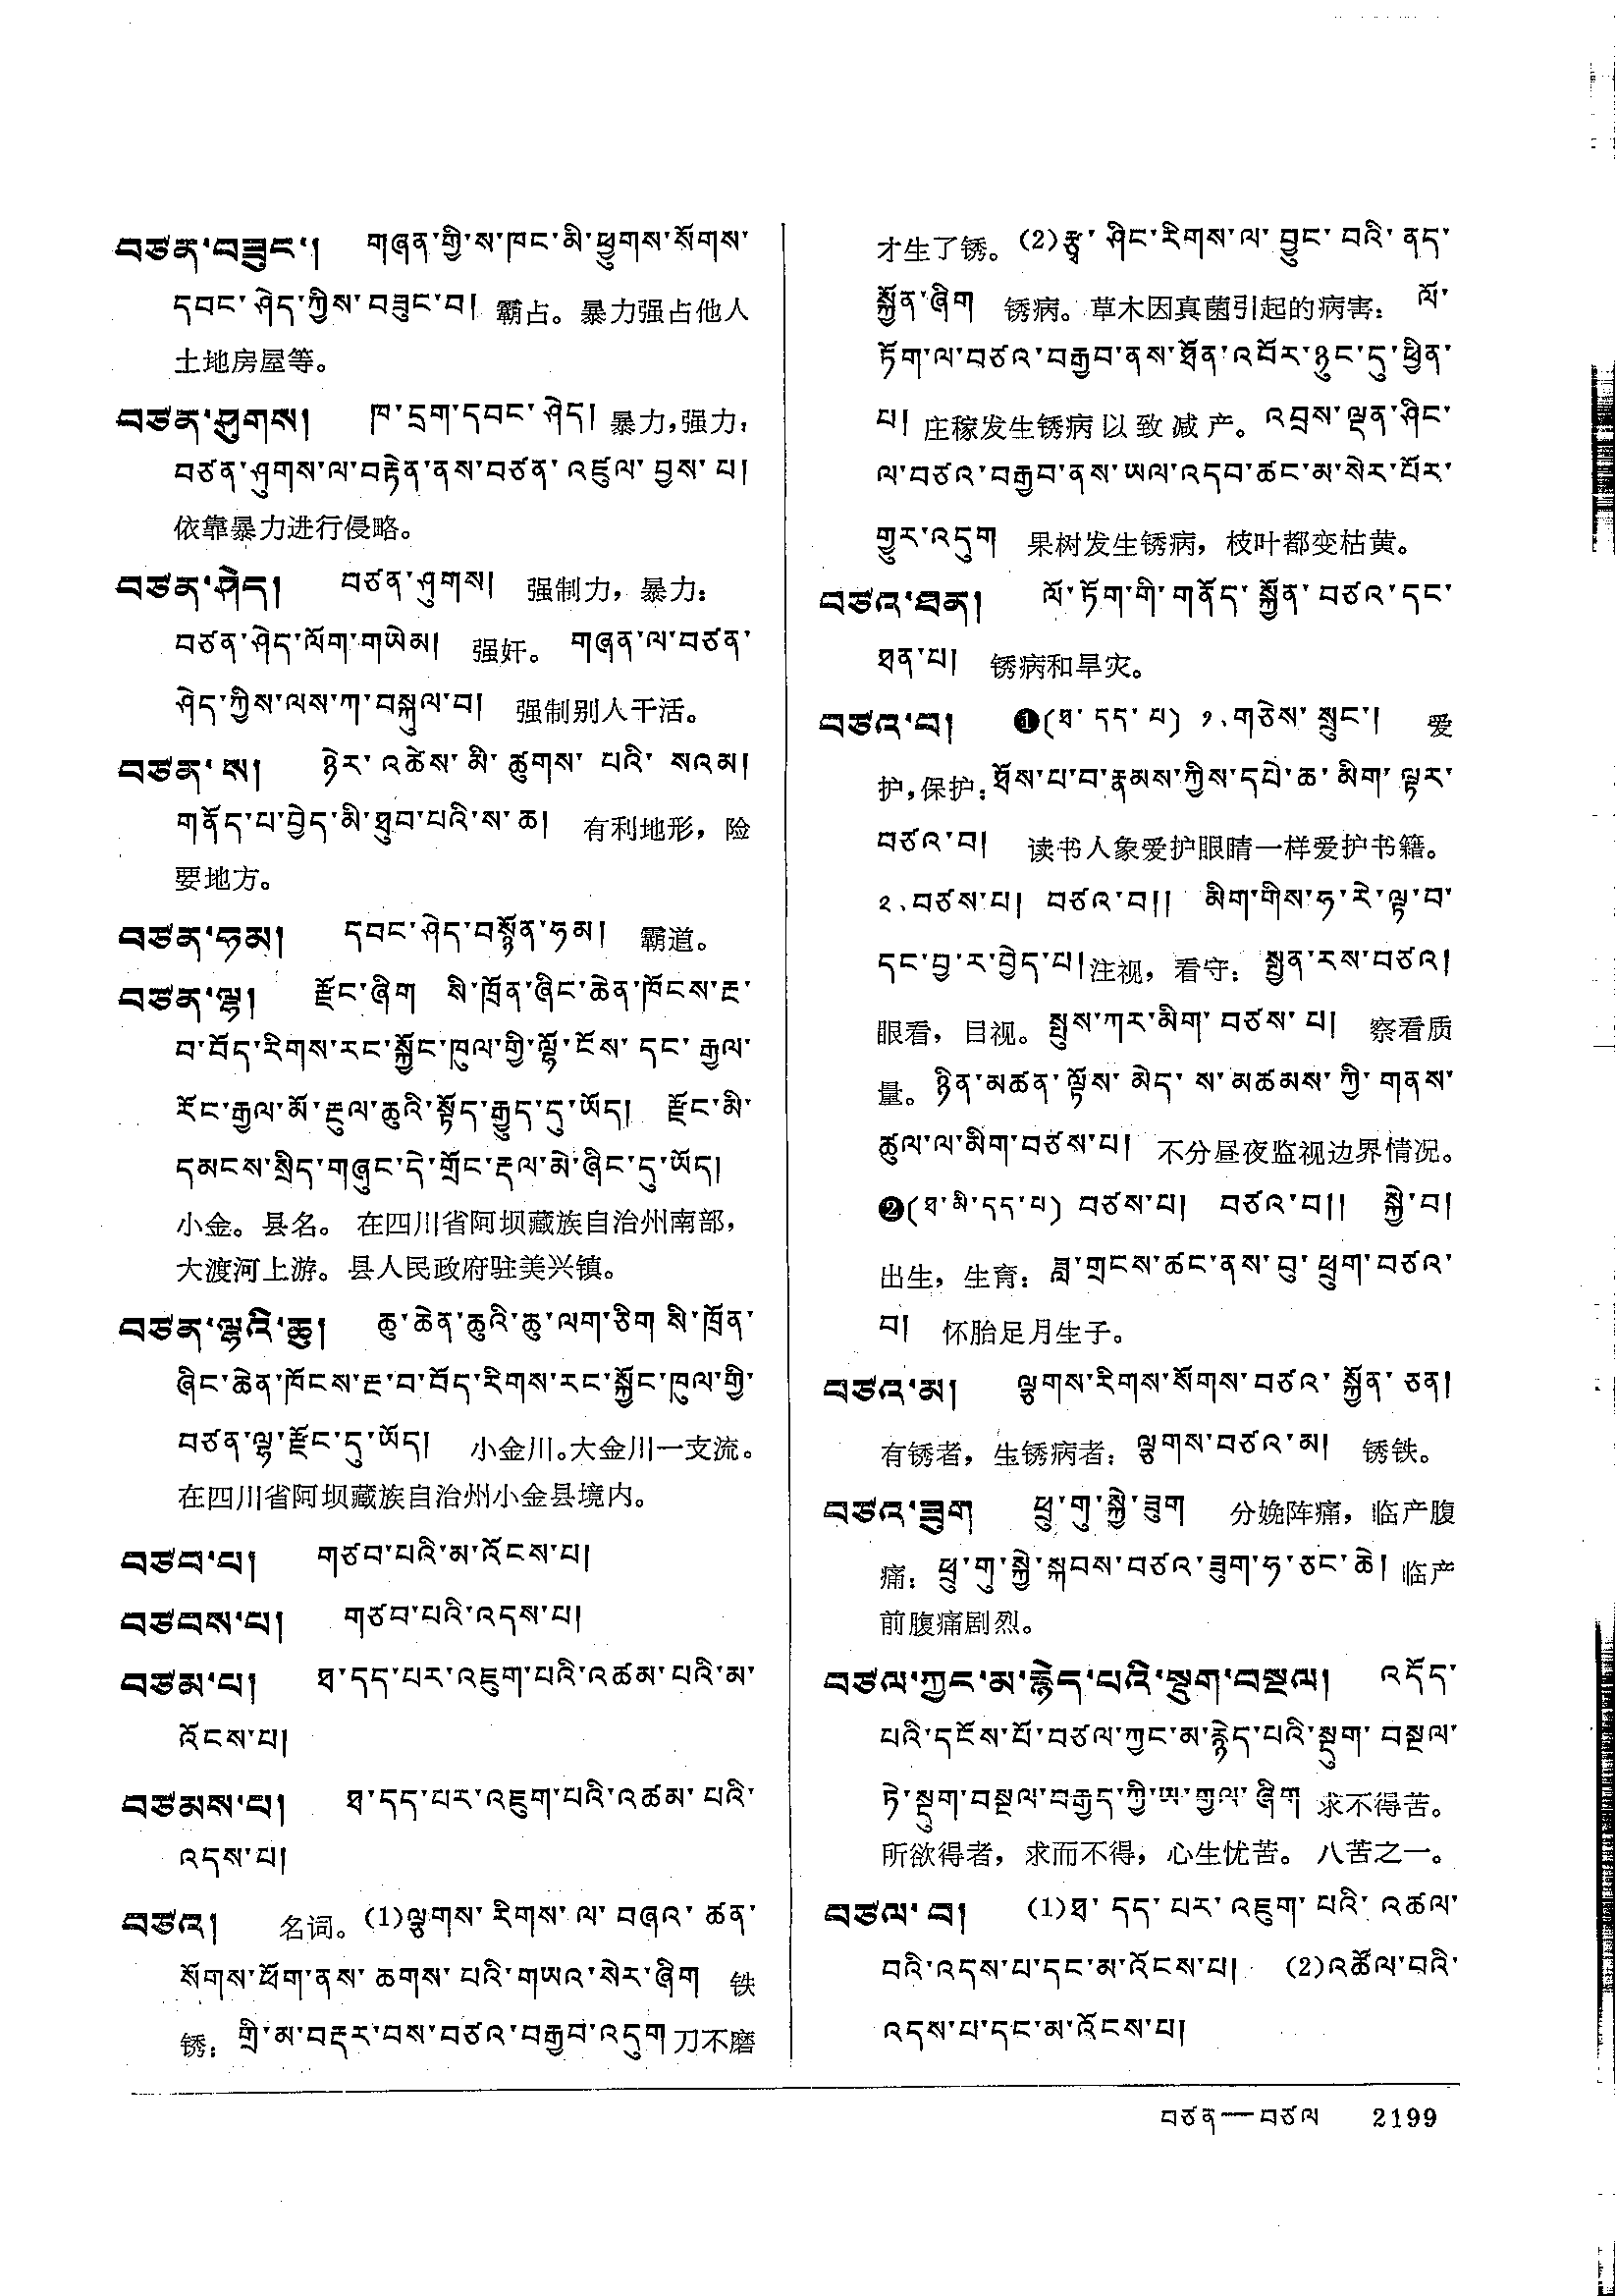 བཙན་བཟུང་། གཞན་གྱི་ས་ཁང་མི་ཕྱུགས་སོགས་
དབང་ཤེད་ཀྱིས་བཟུང་བ། 霸占。暴力强占他人
土地房屋等。
བཙན་ཤུགས། ཁ་དྲག་དབང་ཤེད། 暴力,强力:
བཙན་ཤུགས་ལ་བརྟེན་ནས་བཙན་འཛུལ་བྱས་པ།
依靠暴力进行侵略。
བཙན་ཤེད། བཙན་ཤུགས། 强制力，暴力:
བཙན་ཤེད་ལོག་གཡེམ། 强奸。 གཞན་ལ་བཙན་
ཤེད་ཀྱིས་ལས་ཀ་བསྐུལ་བ། 强制别人干活。
བཙན་ས། ཉེར་འཚེས་མི་ཚུགས་པའི་སའམ།
གནོད་པ་བྱེད་མི་ཐུབ་པའི་ས་ཆ། 有利地形，险
要地方。
བཙན་ཧམ། དབང་ཤེད་བསྙོན་ཧམ། 霸道。
བཙན་ལྷ། རྫོང་ཞིག སི་ཁྲོན་ཞིང་ཆེན་ཁོངས་རྔ་
བ་བོད་རིགས་རང་སྐྱོང་ཁུལ་གྱི་ལྷོ་ངོས་དང་རྒྱལ་
རོང་རྒྱལ་མོ་རྔུལ་ཆུའི་སྟོད་རྒྱུད་དུ་ཡོད། རྫོང་མི་
དམངས་སྲིད་གཞུང་དེ་གྲོང་རྡལ་མེ་ཞིང་དུ་ཡོད།
小金。县名。 在四川省阿坝藏族自治州南部，
大渡河上游。县人民政府驻美兴镇。
བཙན་ལྷའི་ཆུ། ཆུ་ཆེན་ཆུའི་ཆུ་ལག་ཅིག སི་ཁྲོན་
ཞིང་ཆེན་ཁོངས་རྔ་བ་བོད་རིགས་རང་སྐྱོང་ཁུལ་གྱི་
བཙན་ལྷ་རྫོང་དུ་ཡོད། 小金川。大金川一支流。
在四川省阿坝藏族自治州小金县境内。
བཙབ་པ། གཙབ་པའི་མ་འོངས་པ།
བཙབས་པ། གཙབ་པའི་འདས་པ།
བཙམ་པ། ཐ་དད་པར་འཇུག་པའི་འཚམ་པའི་མ་
འོངས་པ།
བཙམས་པ། ཐ་དད་པར་འཇུག་པའི་འཚམ་པའི་
འདས་པ།
བཙའ། 名词。(1)ལྕགས་རིགས་ལ་བཞའ་ཚན་
སོགས་ཕོག་ནས་ཆགས་པའི་གཡའ་སེར་ཞིག 铁
锈: གྲི་མ་བརྡར་བས་བཙའ་བརྒྱབ་འདུག 刀不磨
才生了锈。(2)རྩྭ་ཤིང་རིགས་ལ་བྱུང་བའི་ནད་
སྐྱོན་ཞིག 锈病。草木因真菌引起的病害: ལོ་
ཏོག་ལ་བཙའ་བརྒྱབ་ནས་ཐོན་འབོར་ཉུང་དུ་ཕྱིན་
པ། 庄稼发生锈病以致减产。འབྲས་ལྡན་ཤིང་
ལ་བཙའ་བརྒྱབ་ནས་ཡལ་འདབ་ཚང་མ་སེར་པོར་
གྱུར་འདུག 果树发生锈病，枝叶都变枯黄。
བཙའ་ཐན། ལོ་ཏོག་གི་གནོད་སྐྱོན་བཙའ་དང་
ཐན་པ། 锈病和旱灾。
བཙའ་བ། ❶(ཐ་དད་པ) ༡.གཅེས་སྲུང་། 爱
护,保护: ཐོས་པ་བ་རྣམས་ཀྱིས་དཔེ་ཆ་མིག་ལྟར་
བཙའ་བ། 读书人象爱护眼睛一样爱护书籍。
༢.བཙས་པ། བཙའ་བ།། མིག་གིས་ཧ་རེ་ལྟ་བ་
དང་བྱ་ར་བྱེད་པ། 注视，看守: སྤྱན་རས་བཙའ།
眼看，目视。སྤུས་ཀར་མིག་བཙས་པ། 察看质
量。ཉིན་མཚན་ལྟོས་མེད་ས་མཚམས་ཀྱི་གནས་
ཚུལ་ལ་མིག་བཙས་པ། 不分昼夜监视边界情况。
❷(ཐ་མི་དད་པ) བཙས་པ། བཙའ་བ།། སྐྱེ་བ།
出生，生育: ཟླ་གྲངས་ཚང་ནས་བུ་ཕྲུག་བཙའ་
བ། 怀胎足月生子。
བཙའ་མ། ལྕགས་རིགས་སོགས་བཙའ་སྐྱོན་ཅན།
有锈者，生锈病者: ལྕགས་བཙའ་མ། 锈铁。
བཙའ་ཟུག ཕྲུ་གུ་སྐྱེ་ཟུག 分娩阵痛，临产腹
痛: ཕྲུ་གུ་སྐྱེ་སྐབས་བཙའ་ཟུག་ཧ་ཅང་ཆེ། 临产
前腹痛剧烈。
བཙལ་ཀྱང་མ་རྙེད་པའི་སྡུག་བསྔལ། འདོད་
པའི་དངོས་པོ་བཙལ་ཀྱང་མ་རྙེད་པའི་སྡུག་བསྔལ་
ཏེ་སྡུག་བསྔལ་བརྒྱད་ཀྱི་ཡ་གྱལ་ཞིག 求不得苦。
所欲得者，求而不得，心生忧苦。 八苦之一。
བཙལ་བ། (1)ཐ་དད་པར་འཇུག་པའི་འཚལ་
བའི་འདས་པ་དང་མ་འོངས་པ། (2)འཚོལ་བའི་
འདས་པ་དང་མ་འོངས་པ།
བཙན—བཙལ 2199